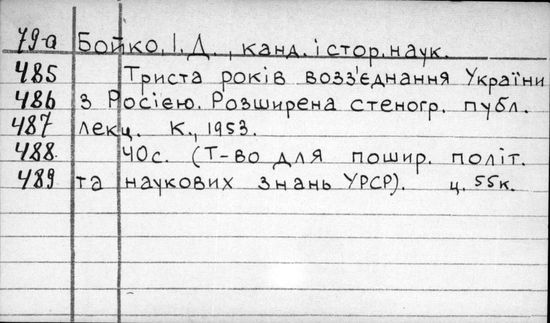 79-а Бойко, І. Д., канд. істор. наук.
485 Триста років возз'єднання України
486 з Росією. Розширена стеногр. публ.
487 лекц. К., 1953.
488 40с. (Т-во для пошир. політ.
489 та наукових знань УРСР). ц. 55к.